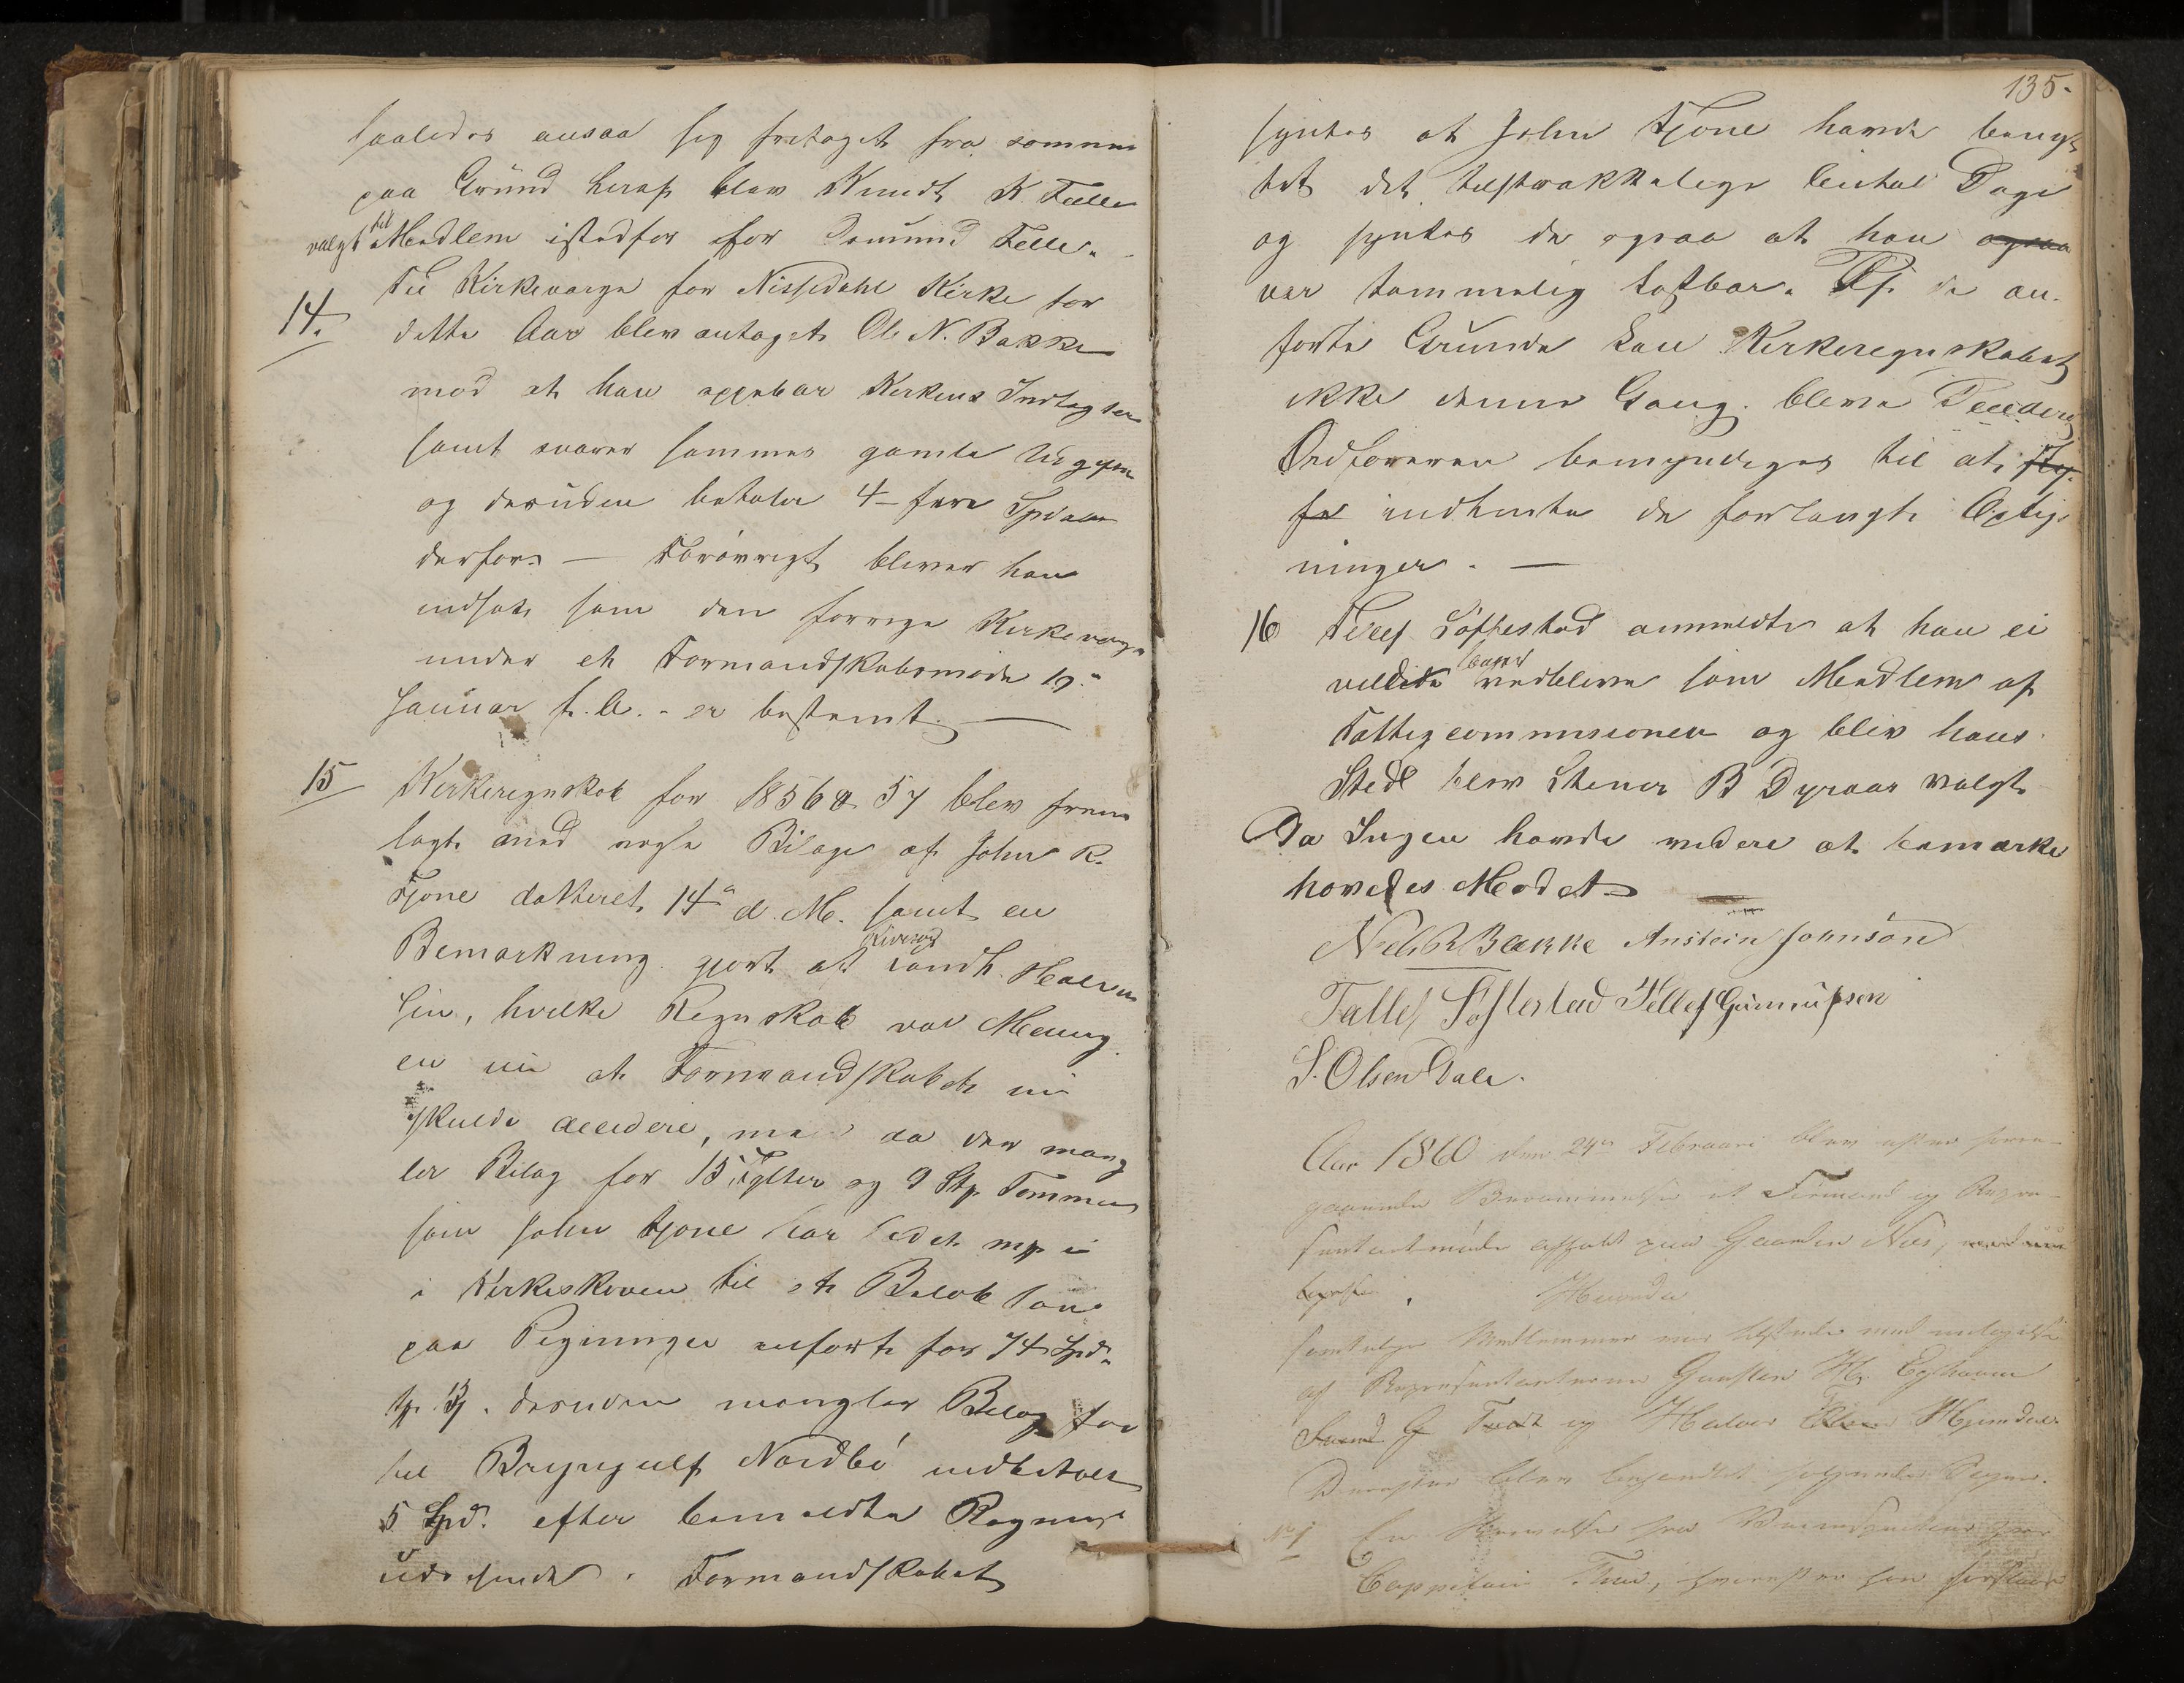 saaledes ansaa sig fritaget fra samme
paa Grund heraf blev Knudt K. Felle
valgt til Medlem istedfor for Osmund Felle.
14. Til Kirkeværge for Nissedahl Kirke for
dette Aar blev antaget Ole N. Bakke
mod at han oppebær Kirkens Indtægter
samt svarer sammes gamle Udgifter
og desuden betaler 4 – fire Spdaler
derfor. – Forøvrigt bliver han
indsat som den forrige Kirkeværge
under et Formandskabsmøde 19de
Januar f. A. er bestemt. –
15 Kirkeregnskab for 1856 & 57 blev frem
lagt med nogle Bilage af John R.
Tjone datteret 14de d. M. samt en
Bemærkning gjort at Revisor Landh. Halvor
sen, hvilke Regnskab var Mening
en nu at Formandskabet nu
skulde decidere, men da der mang
ler Bilag for 15 Tylter og 9 Stp Tømmer
som John Tjone har
i Kirkeskoven til et Beløb som
paa Regninger anført for 74 Spd.
desuden mangler Bilag for
til Bryngulf Nordbø indbetalt
5 Spd. efter bemeldte Regnings
udvisende. Formandskabet
135.
syntes at John Tjone havde beny
tet det tilstrækkelige Antal Dage
og syntes de ogsaa at han ogsaa
var temmelig kostbar. Af de an-
førte Grunde kan Kirkeregnskabet
ikke denne Gang blive Decideret
Ordføreren bemyndiges til at
indhente de forlangte Oplys
ninger. –
16 Tellef Søftestad anmeldte at han ei
vilde vedblive som Medlem af
Fattigcommissionen og blev hans
Sted blev Stener B Dyraas valgt
Da Ingen havde videre at bemærke
hævedes Mødet –
Niels R Bakke Anstein Johnsøn
Tallef Søftestad Tellef Gunnufsen
S. Olsen Dale.
Aar 1860 den 24de Februari blev efter foren-
gaaende Berammelse et Formand og Repræ-
sentantmøde afholdt paa Gaarden Næs,
samtlige Medlemmer var tilstede med undtagelse
af Repræsentanterne Gunsten H.
G og Halvor
Derefter blev behandlet følgende Sager.
No 1 En Skrivelse fra
Cappitain